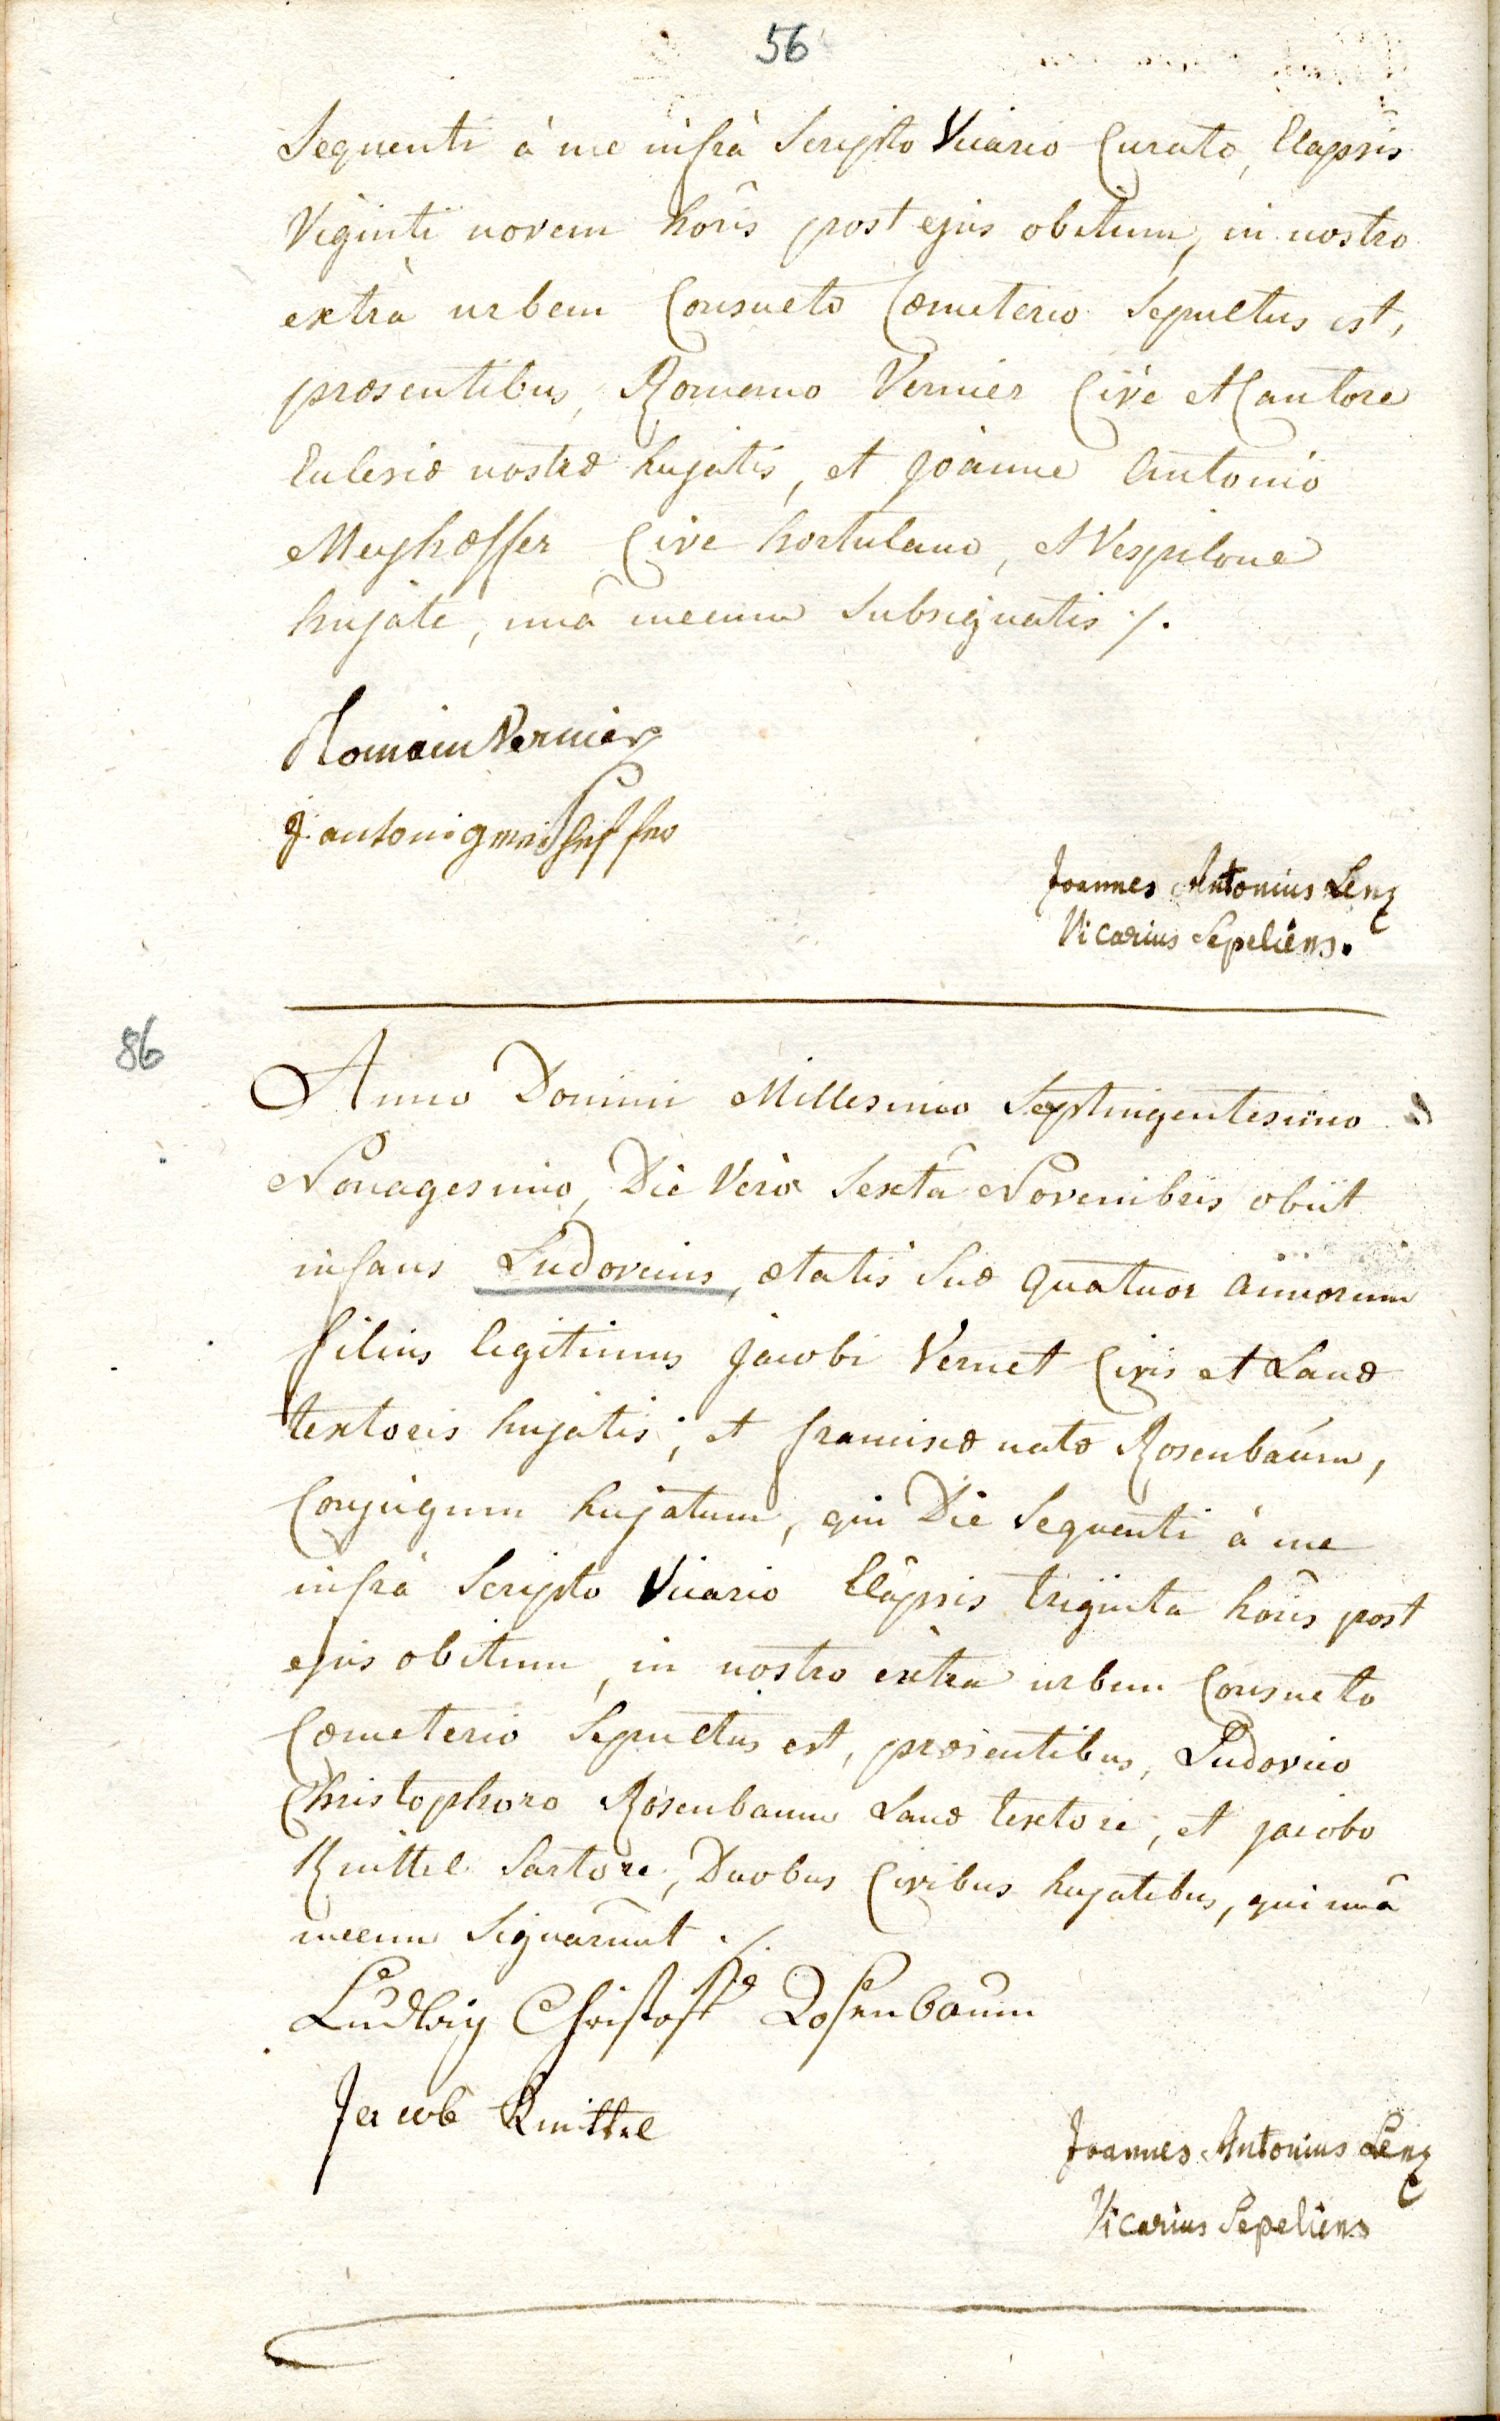 56
Sequenti à me infrà Scripto Vicario Curato, Elapsis
Viginti novem horîs post ejus obitum, in nostro
extrà urbem Consueto Cœmeterio Sepultus est,
prœsentibus, Romano Vernier Cive et Cantore
Eclesiæ nostræ hujatis, et Joanne Antonio
Meyhœffer Cive hortulano, et Vespilone
hujate, unâ mecum Subsignatis ./.
Romain Vernier
J. antoni meiheffer
Joannes Antonius Lenz
Vicarius Sepeliens.
86
Anno Domini Millesimo Septingentesimo
Nonagesimo, Die Verò Sextâ Novembris obiit
infans Ludovicus, ætatis Suæ quatuor annorum
filius legitimus Jacobi Vernet Civis et Lanæ
textoris hujatis; et franciscæ natæ Rosenbaum,
Conjugum hujatum, qui Die Sequenti à me
infrà Scripto Vicario Elapsis triginta horîs post
ejus obitum, in nostro extra urbem Consueto
Cœmeterio Sepultus est, præsentibus, Ludovico
Christophoro Rosenbaum Lanæ textore, et jacobo
Knittel Sartore, Duobus Civibus hujatibus, qui unâ
mecum Signarunt ./.
Ludwig Christoff Rosenbaum
Jacob Knittel
Joannes Antonius Lenz
Vicarius Sepeliens